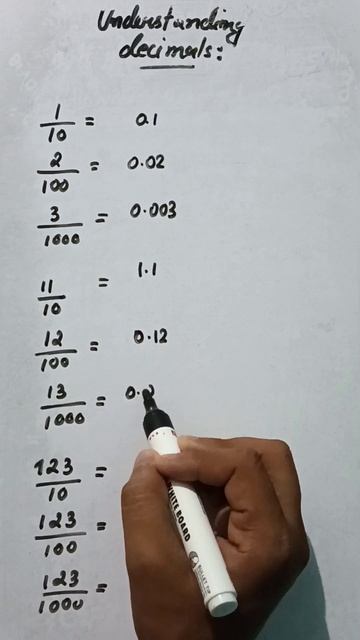 Understanding
decimals:
1/10 = 0.1
2/100 = 0.02
3/1000 = 0.003
11/10 = 1.1
12/100 = 0.12
13/1000 = 0.
123/10 =
123/100 =
123/1000 =
WHITE BOARD